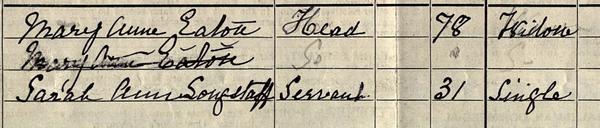 Mary Anne Eaton Head 78 Widow
Mary Ann Eaton
Sarah Ann Longstaff Servant 31 Single